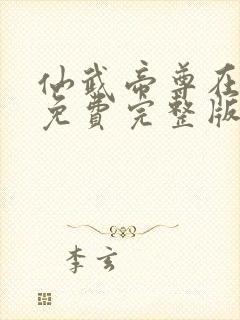 仙武帝尊在
免費完整版
李玄